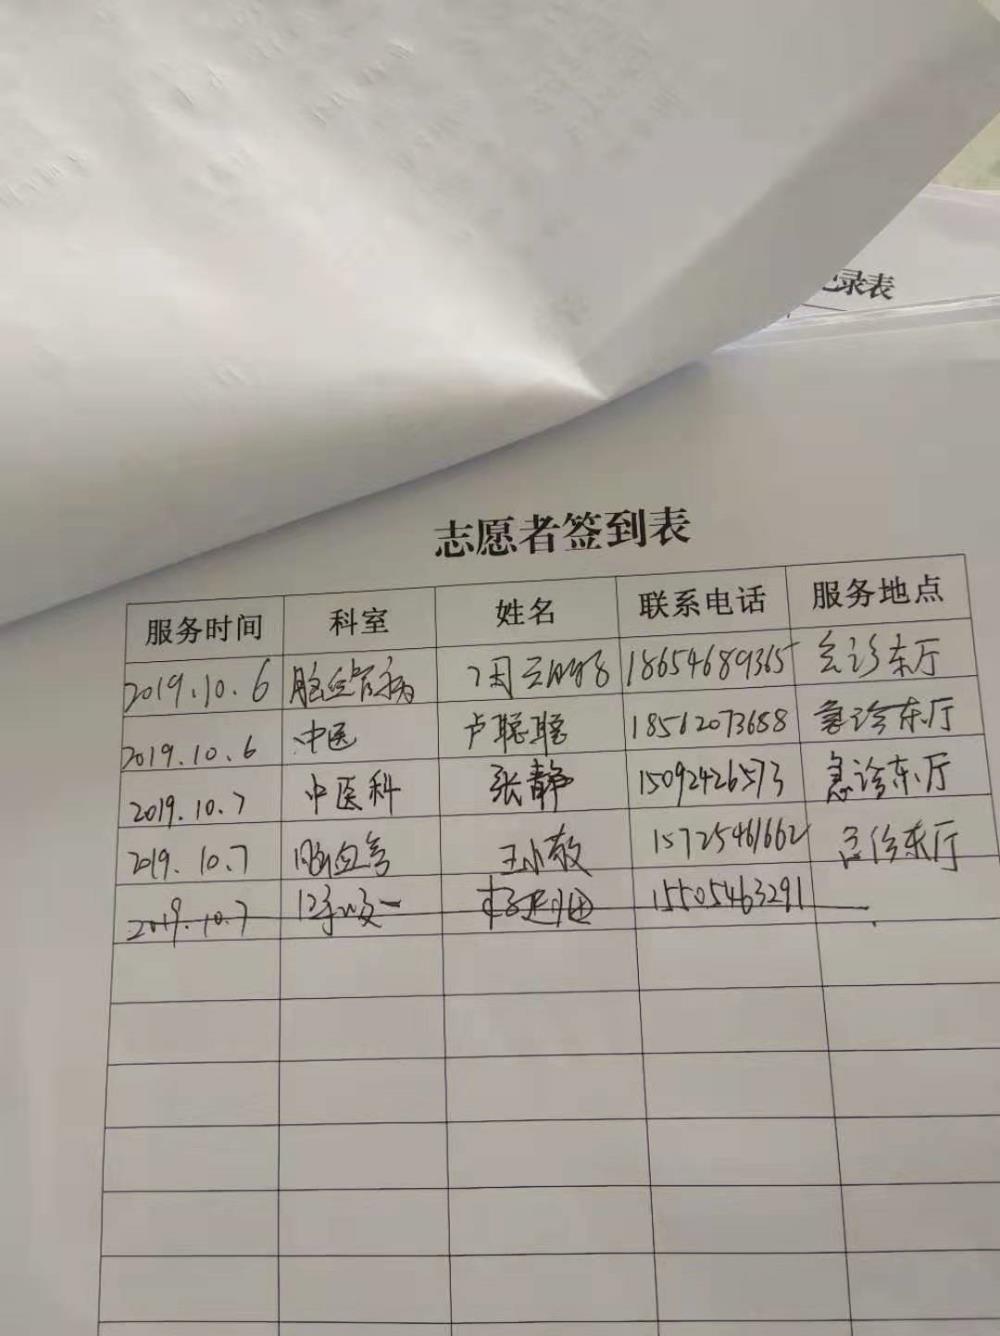 录表
志愿者签到表
服务时间 科室 姓名 联系电话 服务地点
2019.10.6 脑血管病 周 18654689365 急诊东厅
2019.10.6 中医 卢聪聪 18562073688 急诊东厅
2019.10.7 中医科 张静 15092426573 急诊东厅
2019.10.7 脑血管 王小敏 15725461662 急诊东厅
2019.10.7 15505463291